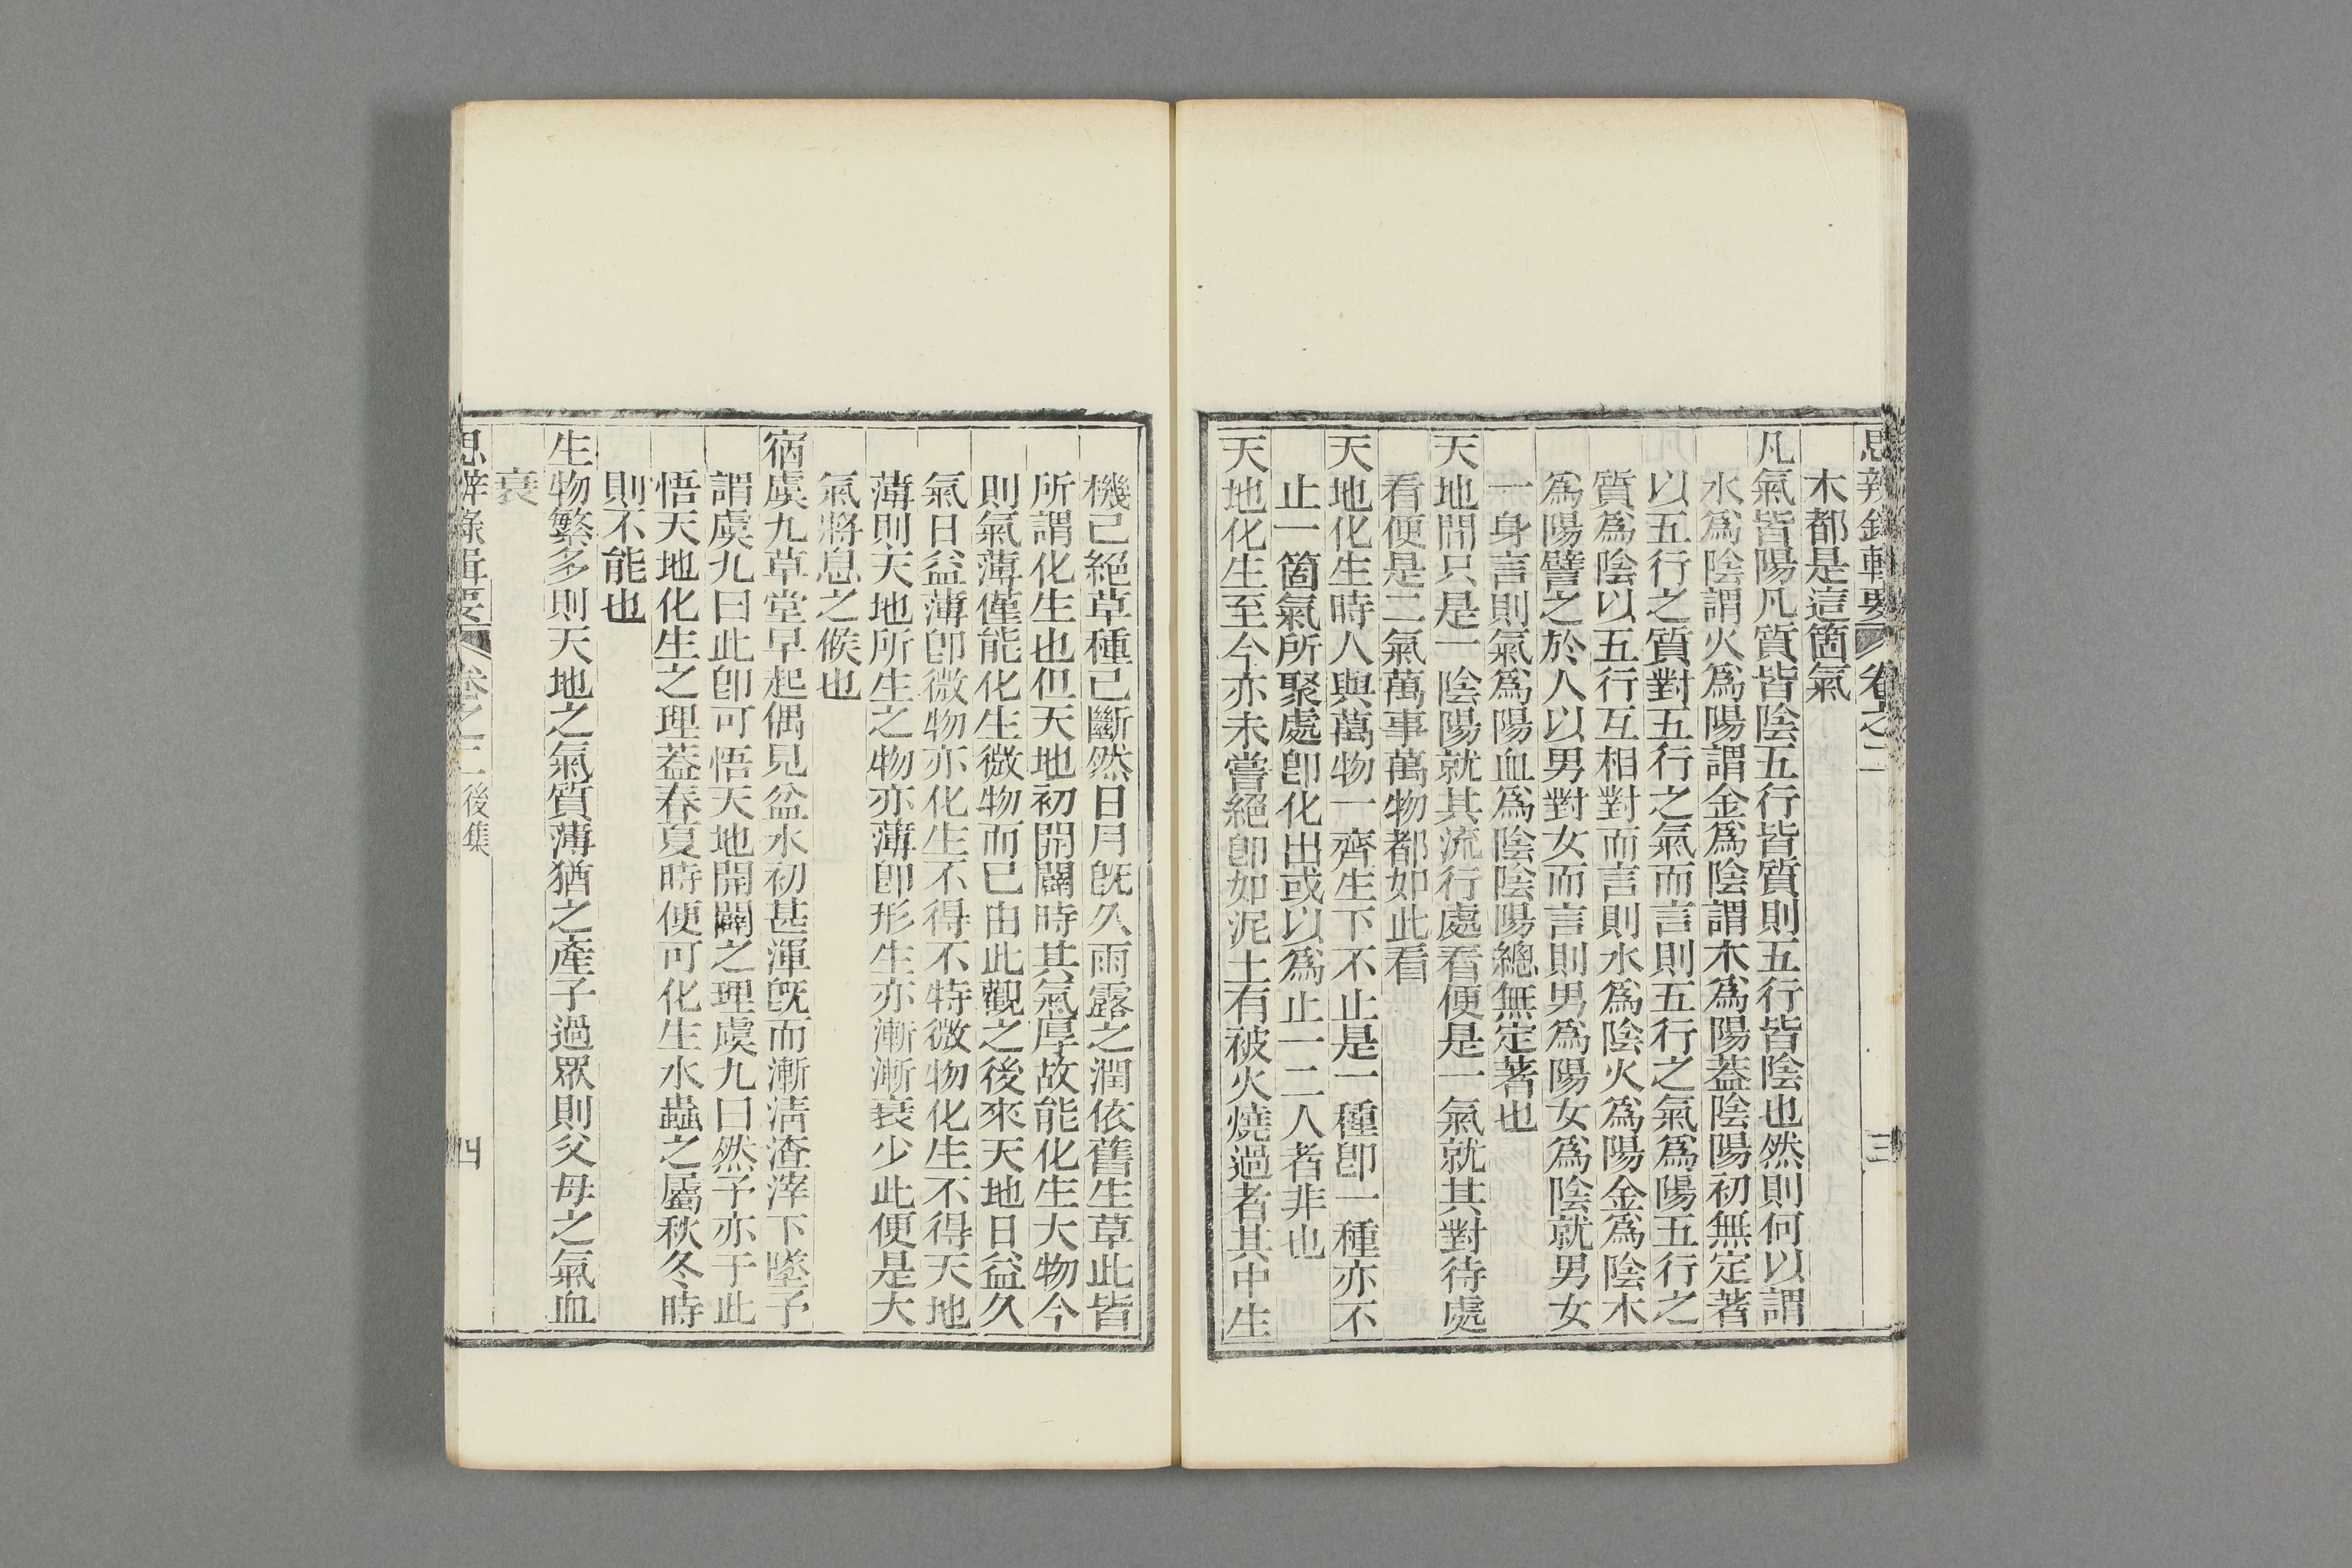 思辨錄輯要 卷之二 三
木都是這箇氣
凡氣皆陽凡質皆陰五行皆質則五行皆陰也然則何以謂
水爲陰謂火爲陽謂金爲陰謂木爲陽蓋陰陽初無定著
以五行之質對五行之氣而言則五行之氣爲陽五行之
質爲陰以五行互相對而言則水爲陰火爲陽金爲陰木
爲陽譬之於人以男對女而言則男爲陽女爲陰就男女
一身言則氣爲陽血爲陰陰陽總無定著也
天地間只是一陰陽就其流行處看便是一氣就其對待處
看便是二氣萬事萬物都如此看
天地化生時人與萬物一齊生下不止是一種卽一種亦不
止一箇氣所聚處卽化出或以爲止一二人者非也
天地化生至今亦未嘗絕卽如泥土有被火燒過者其中生
機已絕草種已斷然日月旣久雨露之潤依舊生草此皆
所謂化生也但天地初開闢時其氣厚故能化生大物今
則氣薄僅能化生微物而已由此觀之後來天地日益久
氣日益薄卽微物亦化生不得不特微物化生不得天地
薄則天地所生之物亦薄卽形生亦漸漸衰少此便是大
氣將息之候也
宿虞九草堂早起偶見盆水初甚渾旣而漸清渣滓下墜予
謂虞九曰此卽可悟天地開闢之理虞九曰然予亦于此
悟天地化生之理蓋春夏時便可化生水蟲之屬秋冬時
則不能也
生物繁多則天地之氣質薄猶之產子過眾則父母之氣血
衰
思辨錄輯要 卷之二後集 四